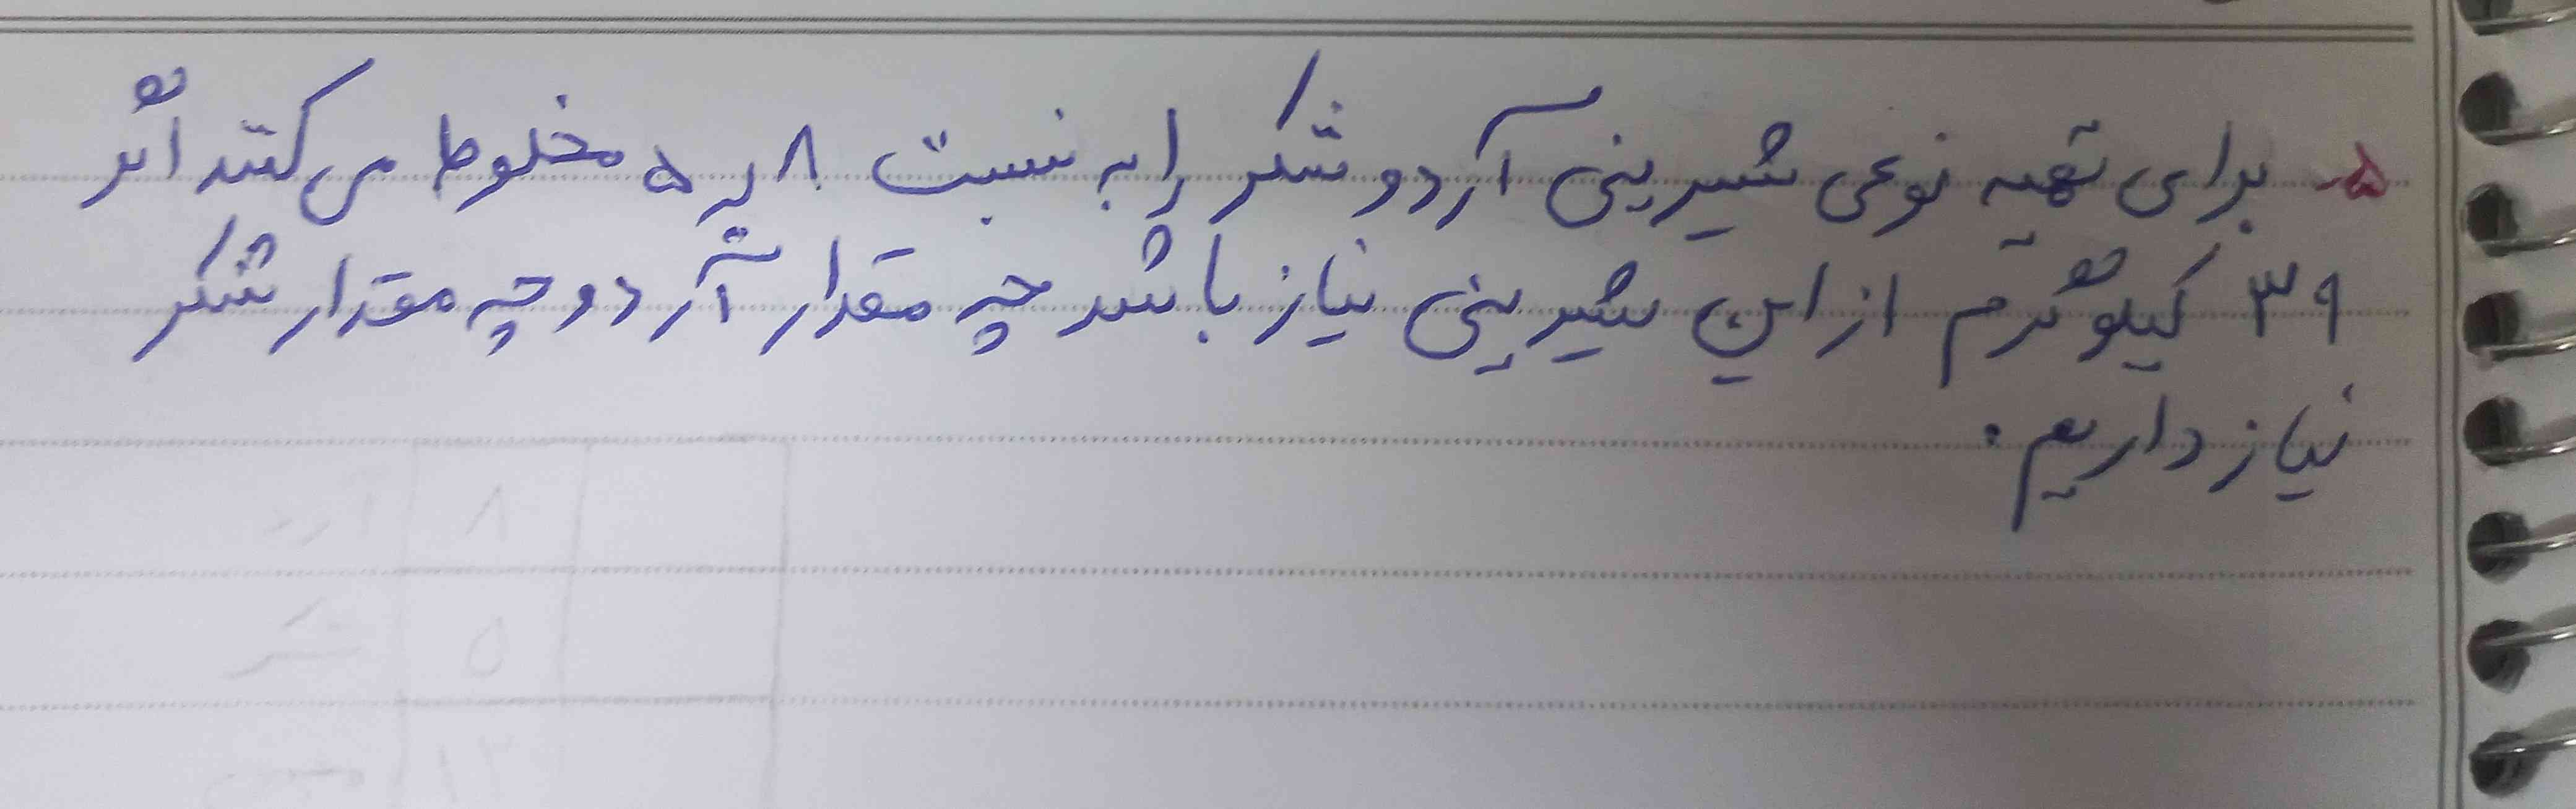 ۵- برای تهیه نوعی شیرینی آرد و شکر را به نسبت ۸ به ۵ مخلوط می کنند اگر
۳۹ کیلوگرم از این شیرینی نیاز باشد چه مقدار آرد و چه مقدار شکر
نیاز داریم.
۸ آرد
۵ شکر
۱۳